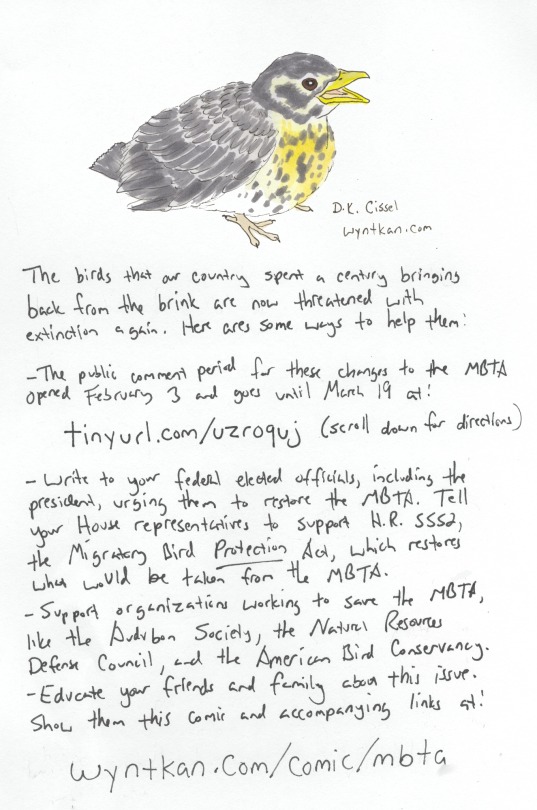 D.K. Cissel
wyntkan.com
The birds that our country spent a century bringing
back from the brink are now threatened with
extinction again. Here ares some ways to help them:
-The public comment period for these changes to the MBTA
opened February 3 and goes until March 19 at:
tinyurl.com/uzroquj (scroll down for directions)
- Write to your federal elected officials, including the
president, urging them to restore the MBTA. Tell
your House representatives to support H.R. 5552,
the Migratory Bird Protection Act, which restores
what would be taken from the MBTA.
- Support organizations working to save the MBTA,
like the Audubon Society, the Natural Resources
Defense Council, and the American Bird Conservancy.
- Educate your friends and family about this issue.
Show them this comic and accompanying links at:
wyntkan.com/comic/mbta